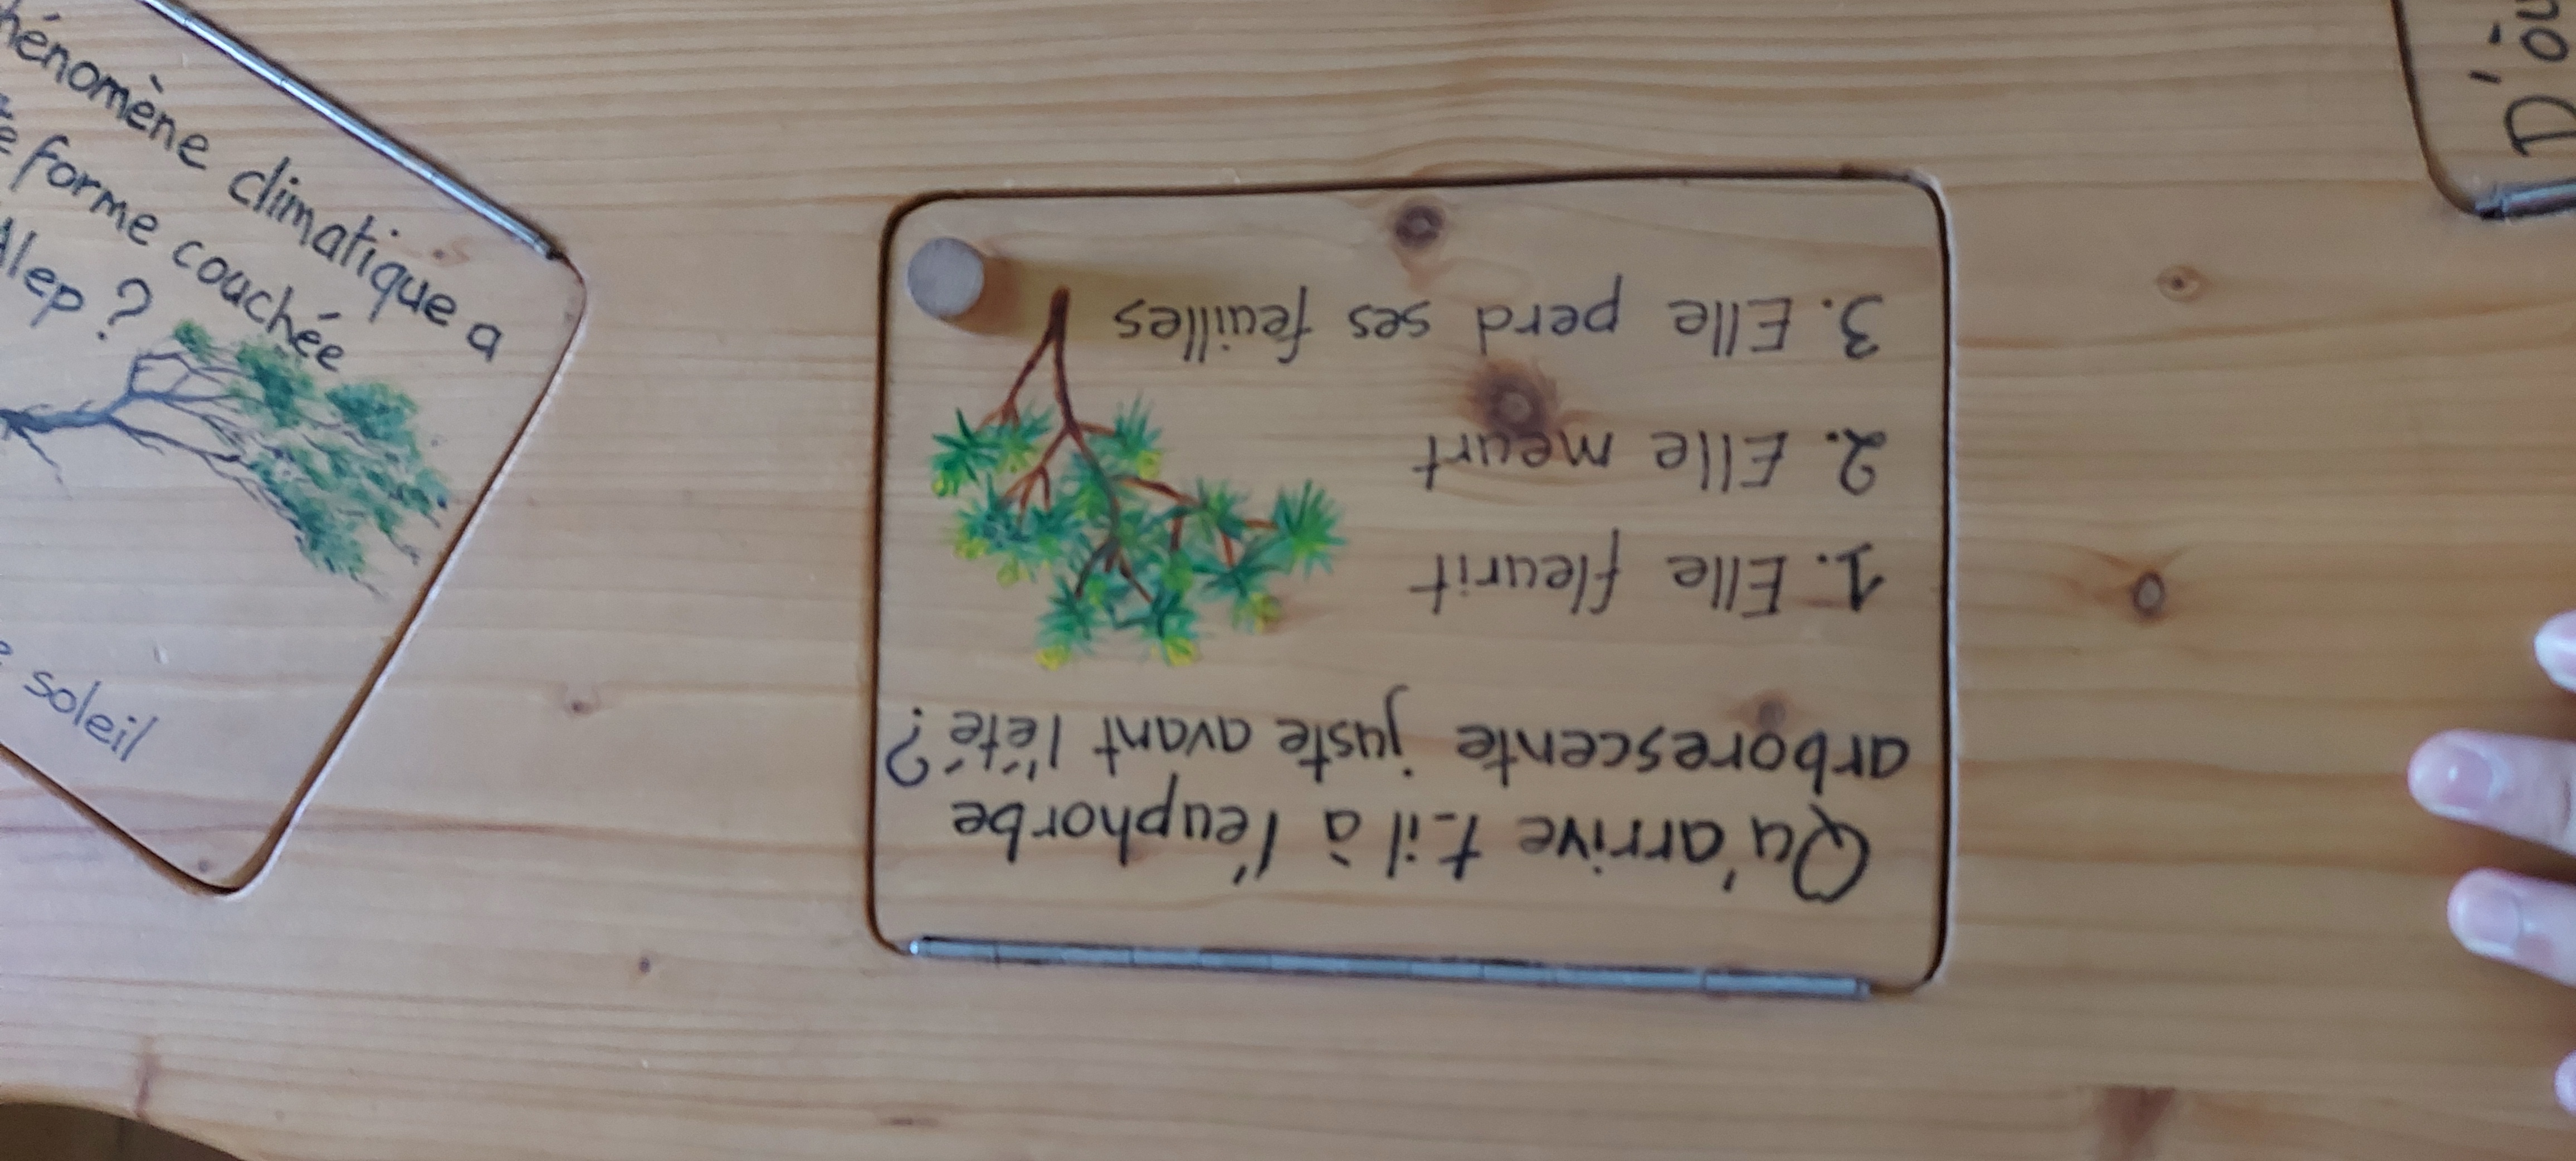 Qu'arrive t-il à l'euphorbe
arborescente juste avant l'été?
1. Elle fleurit
2. Elle meurt
3. Elle perd ses feuilles
hénomène climatique a
forme couchée
Alep ?
soleil
D'où